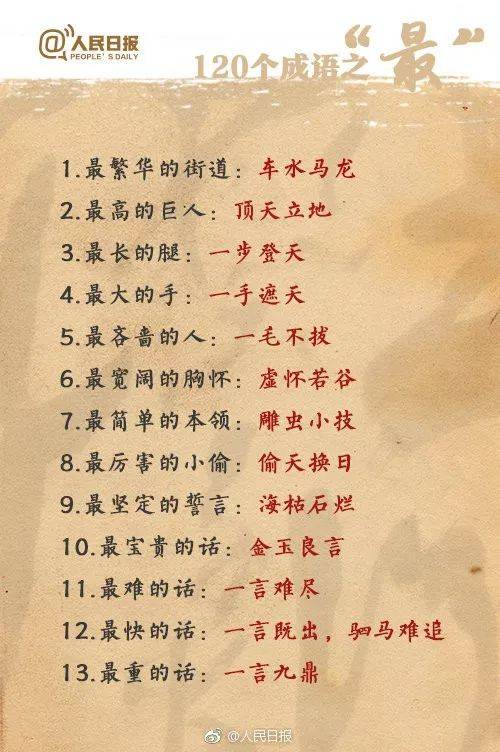 @人民日报
PEOPLE'S DAILY
120个成语之“最”
1.最繁华的街道：车水马龙
2.最高的巨人：顶天立地
3.最长的腿：一步登天
4.最大的手：一手遮天
5.最吝啬的人：一毛不拔
6.最宽阔的胸怀：虚怀若谷
7.最简单的本领：雕虫小技
8.最厉害的小偷：偷天换日
9.最坚定的誓言：海枯石烂
10.最宝贵的话：金玉良言
11.最难的话：一言难尽
12.最快的话：一言既出，驷马难追
13.最重的话：一言九鼎
@人民日报